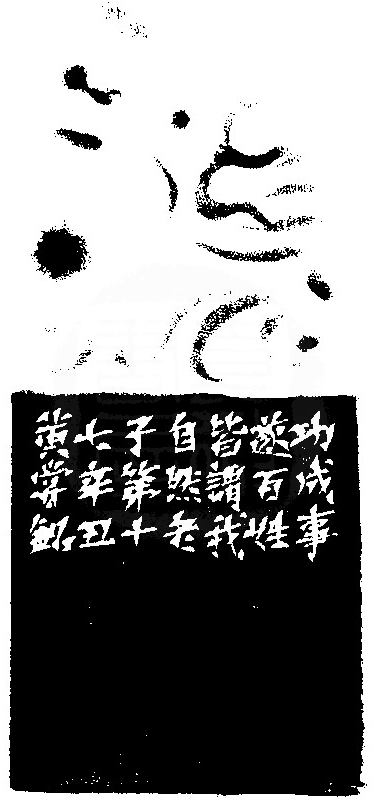 功成事
遂百姓
皆謂我
自然老
子第十
七章
黄